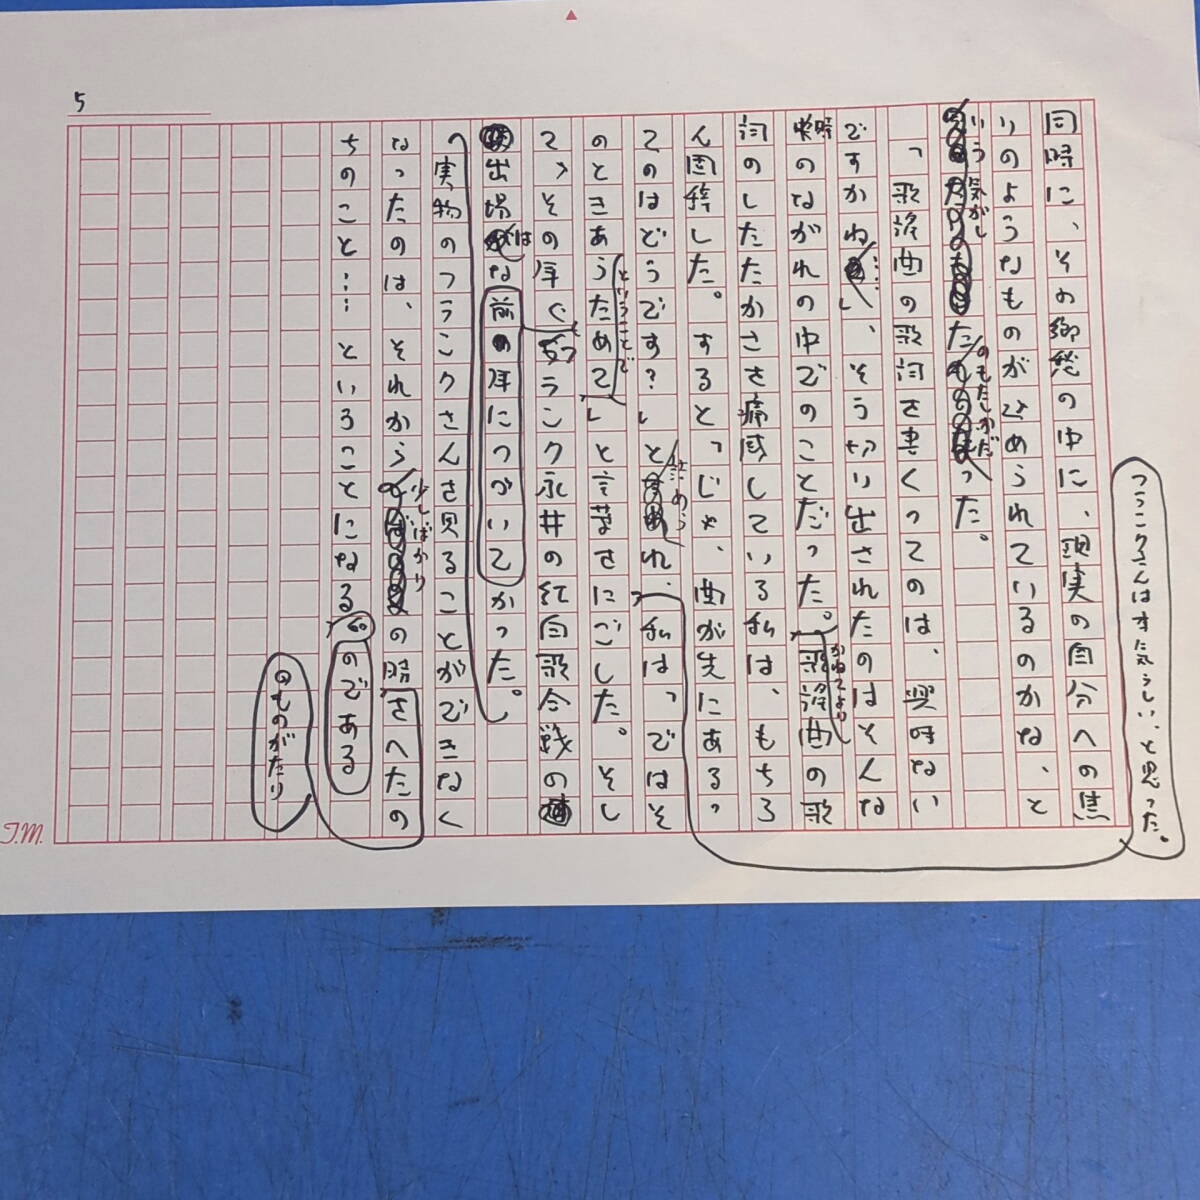 5
同時に、その郷愁の中に、現実の自分への焦
りのようなものがひめられているのかな、と
いう気がし
た
のもたしかだ
った。
「歌謡曲の歌詞を書くってのは、興味ない
ですかね……」、そう切り出されたのはそんな
時のながれの中でのことだった。かねてより歌謡曲の歌
詞のしたたかさを痛感している私は、もちろ
ん固辞した。すると「じゃ、曲が先にある
てのはどうです?」と
フランクさんはすた気らしい、と思った。
れ、私は「ではそ
のときあらためて」
ということで
と言葉をにごした。そし
て、その年
フランク永井の紅白歌合戦の
出場は
な
前の年につづいて
かった。
実物のフランクさんを見ることができなく
なったのは、それから
少しばかり
の時
さへたの
ちのこと……ということになる
のである
のものがたり
T.M.